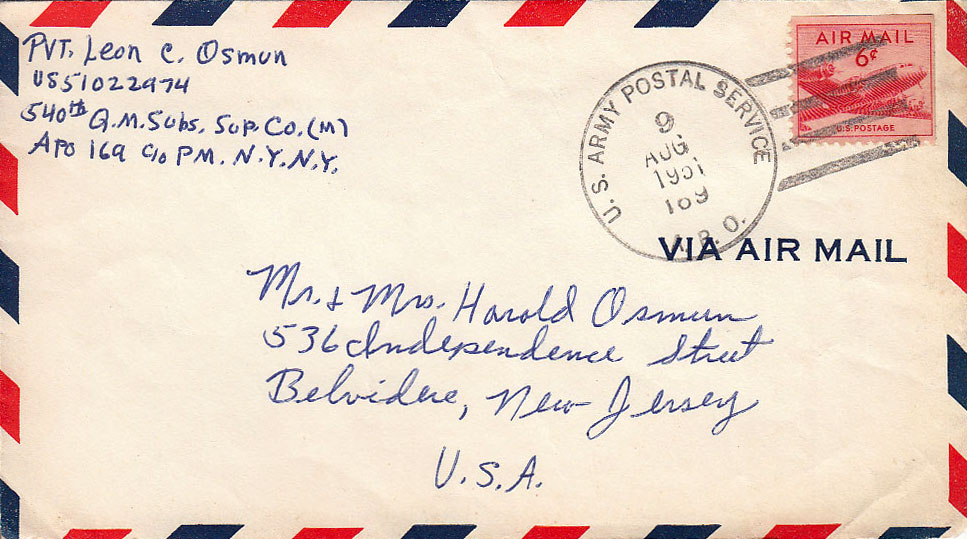 PVT. Leon C. Osmun
US51022974
540th Q.M. Subs. Sup. Co. (M)
APO 169 c/o P.M. N.Y. N.Y.
AIR MAIL
6¢
U.S. POSTAGE
U.S. ARMY POSTAL SERVICE
9
AUG
1951
169
A.P.O.
VIA AIR MAIL
Mr. & Mrs. Harold Osmun
536 Independence Street
Belvidere, New Jersey
U.S.A.